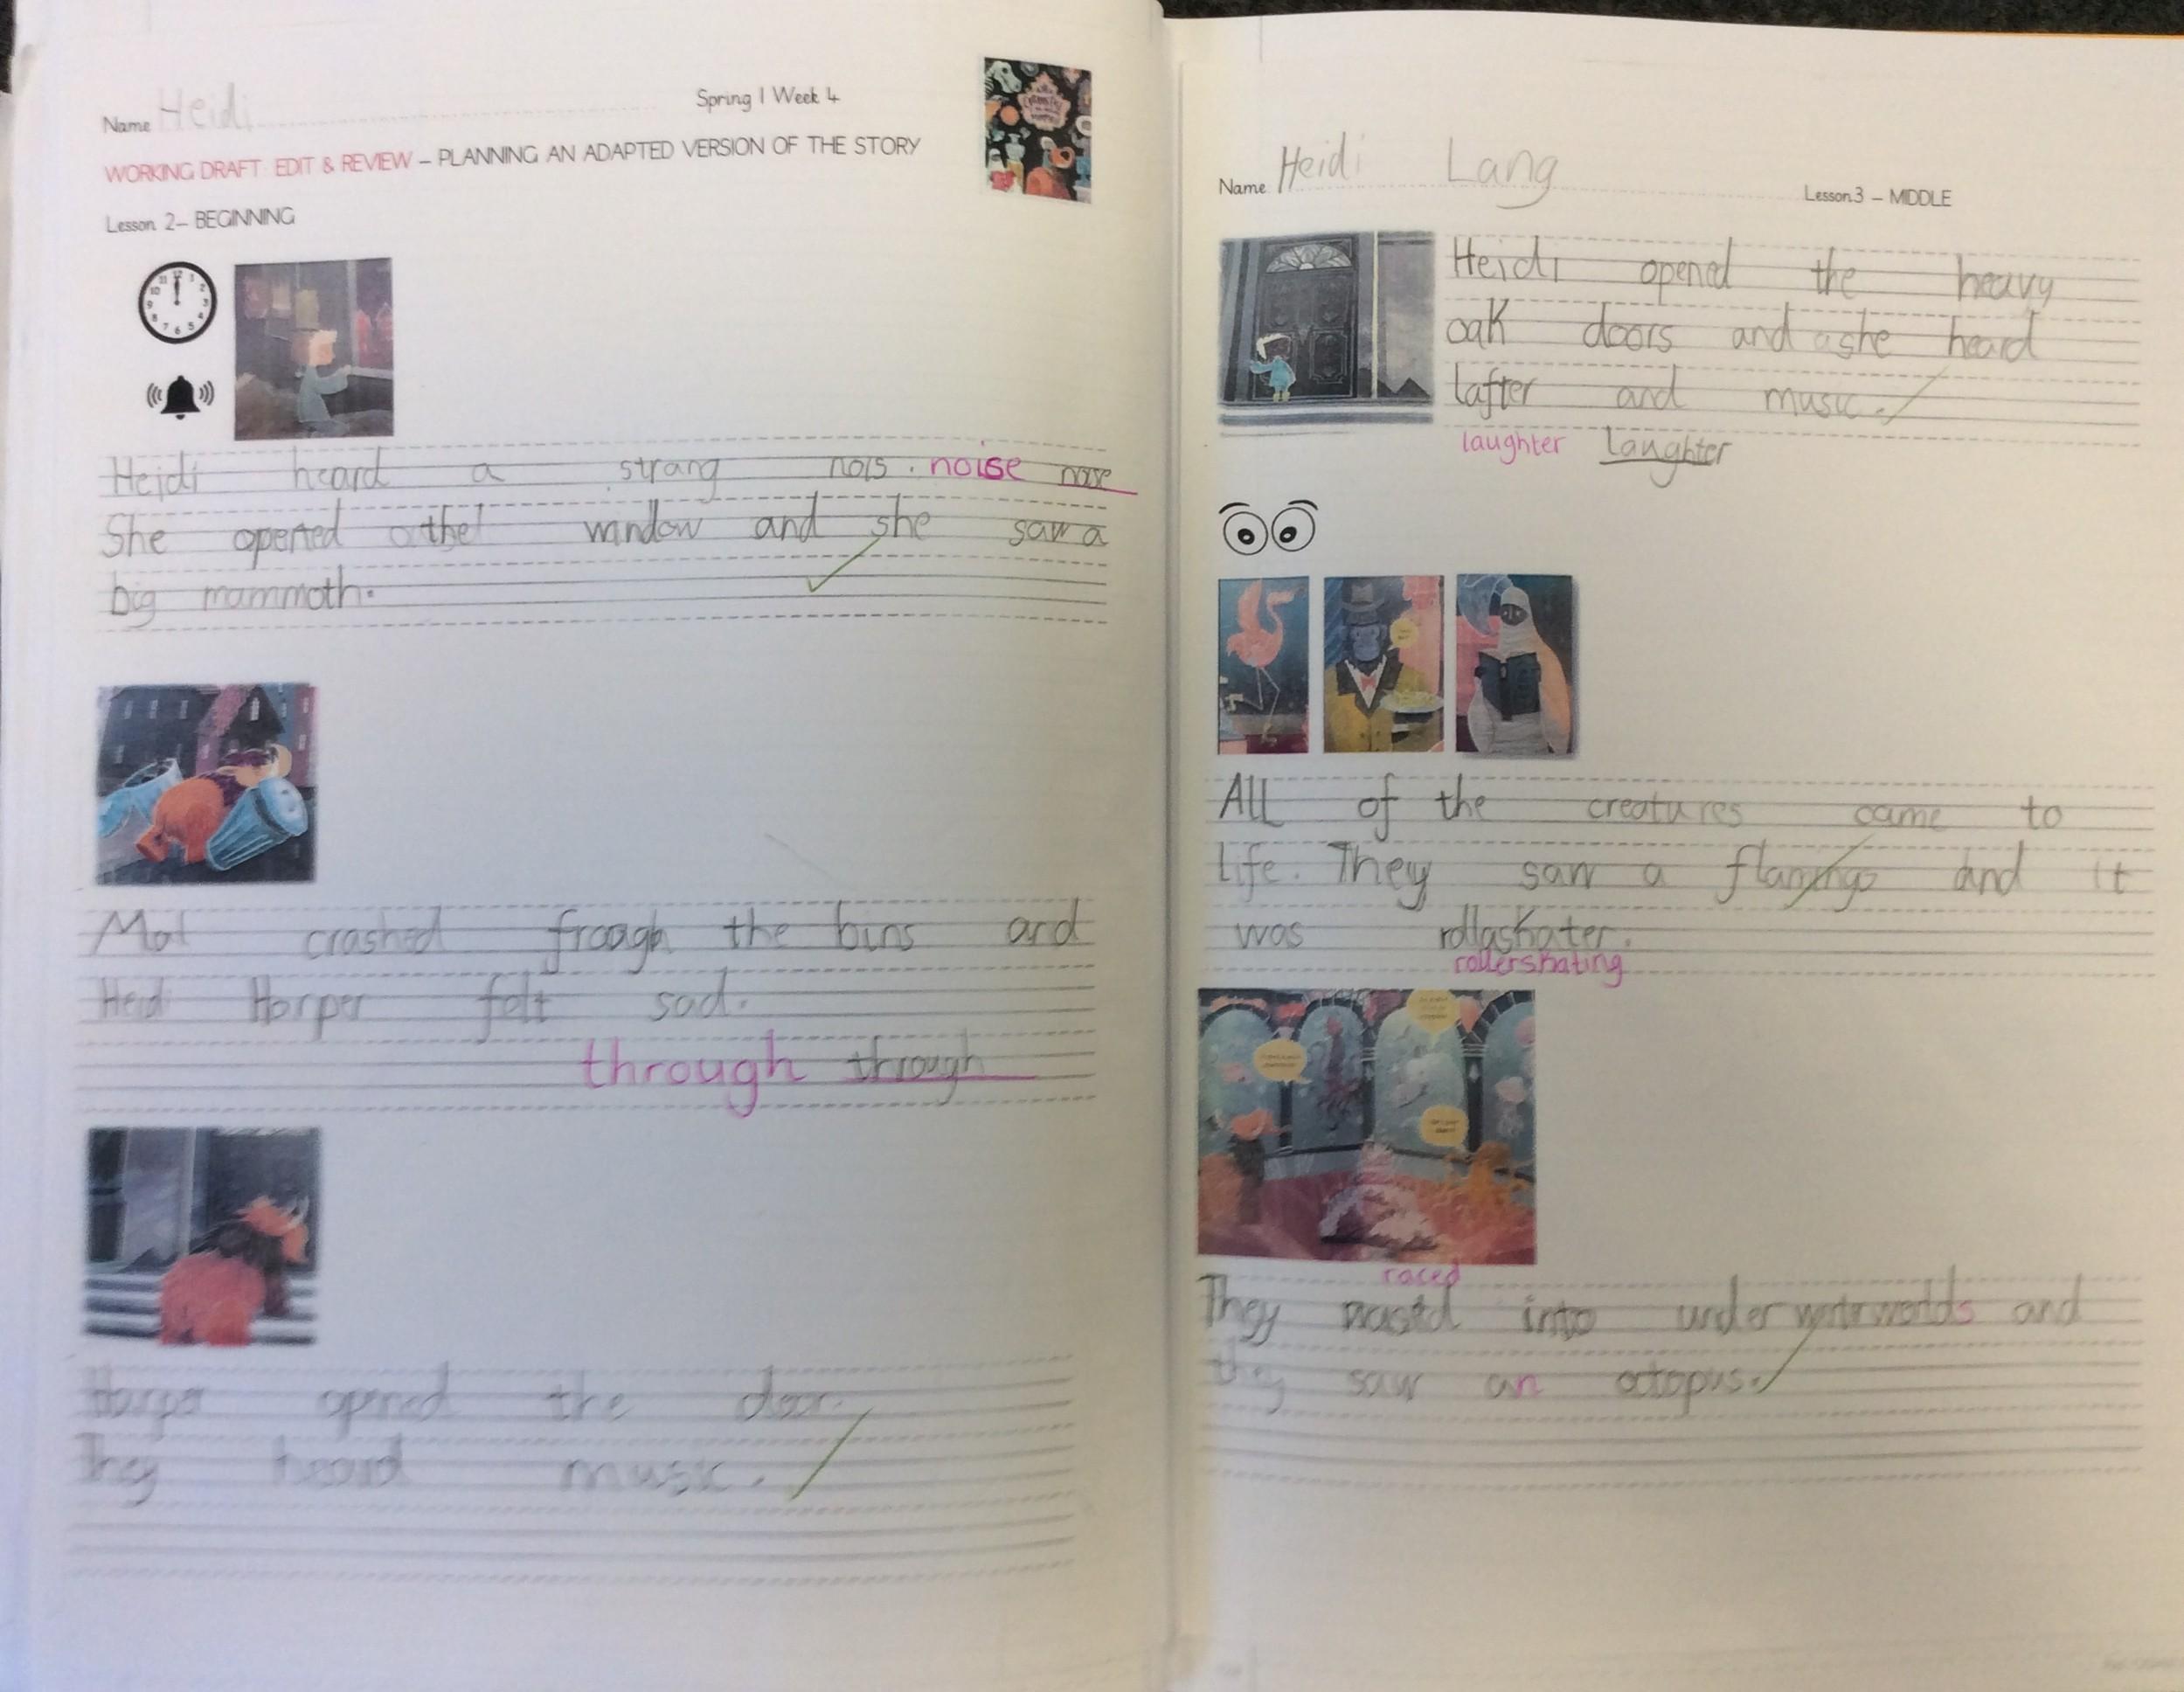 Name Heidi
Spring 1 Week 4
WORKING DRAFT: EDIT & REVIEW – PLANNING AN ADAPTED VERSION OF THE STORY
Lesson 2– BEGINNING
Heidi heard a strang nois. noise noise
She opened the window and she saw a
big mammoth.
Mat crashed froogh the bins and
Heidi Harper felt sad.
through through
Harper opened the door.
They heard music.
Name Heidi Lang
Lesson 3 – MIDDLE
Heidi opened the heavy
oak doors and she heard
lafter and music.
laughter laughter
All of the creatures came to
life. They saw a flamingo and it
was rollaskater.
rollerskating
raced
They into under and
they saw an octopus.